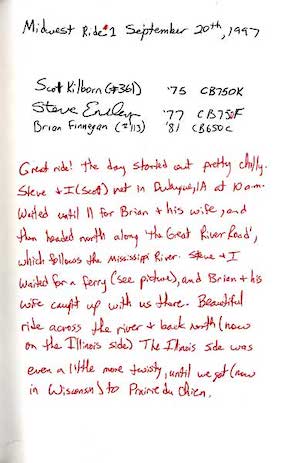 Midwest Ride 1 September 20th, 1997
Scot Kilborn (#361) '75 CB750K
Steve '77 CB750F
Brian Finnegan (#113) '81 CB650C
Great ride! The day started out pretty chilly.
Steve + I (Scot) met in Dubuque, IA at 10 a.m.
Waited until 11 for Brian + his wife, and
then headed north along 'The Great River Road',
which follows the Mississippi River. Steve + I
waited for a ferry (see picture), and Brian + his
wife caught up with us there. Beautiful
ride across the river + back north (now
on the Illinois side) The Illinois side was
even a little more twisty, until we got (now
in Wisconsin) to Prairie du Chien.